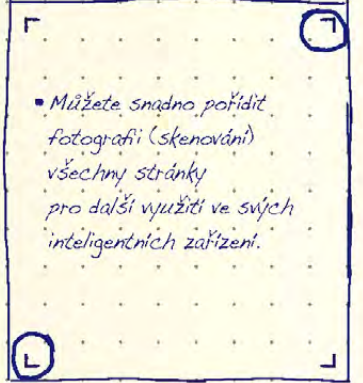 ▪ Můžete snadno pořídit
fotografii (skenování)
všechny stránky
pro další využití ve svých
inteligentních zařízení.